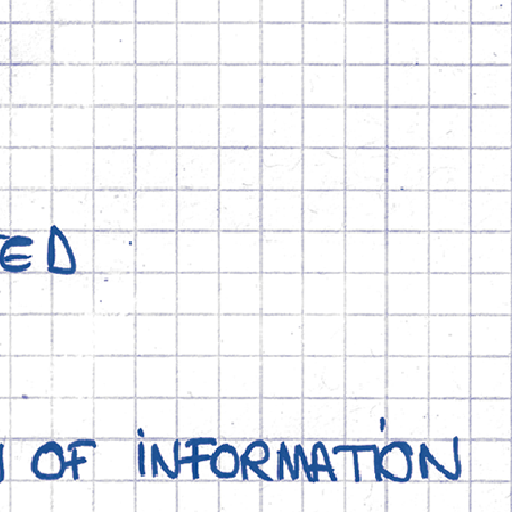 ED
OF iNFORMATiON